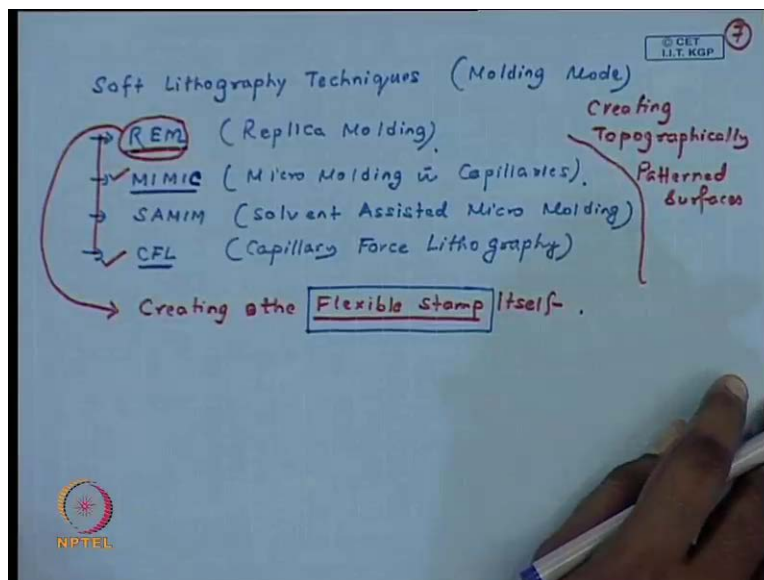 © CET
I.I.T. KGP
7
Soft Lithography Techniques (Molding Mode)
REM (Replica Molding).
MIMIC (Micro Molding in Capillaries).
SAMIM (Solvent Assisted Micro Molding)
CFL (Capillary Force Lithography)
Creating
Topographically
Patterned
Surfaces
Creating the Flexible Stamp Itself.
NPTEL